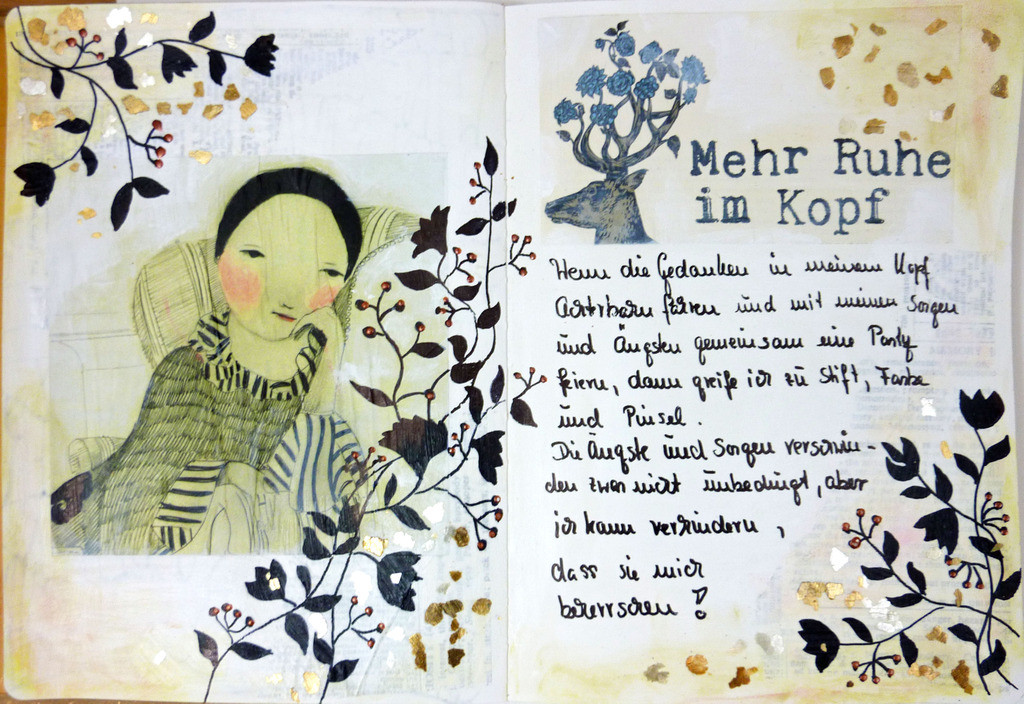 Mehr Ruhe
im Kopf
Wenn die Gedanken in meinem Kopf
Achterbahn fahren und mit meinen Sorgen
und Ängsten gemeinsam eine Party
feiern, dann greife ich zu Stift, Farbe
und Pinsel.
Die Ängste und Sorgen verschwin-
den zwar nicht unbedingt, aber
ich kann verhindern,
dass sie mich
beherrschen!